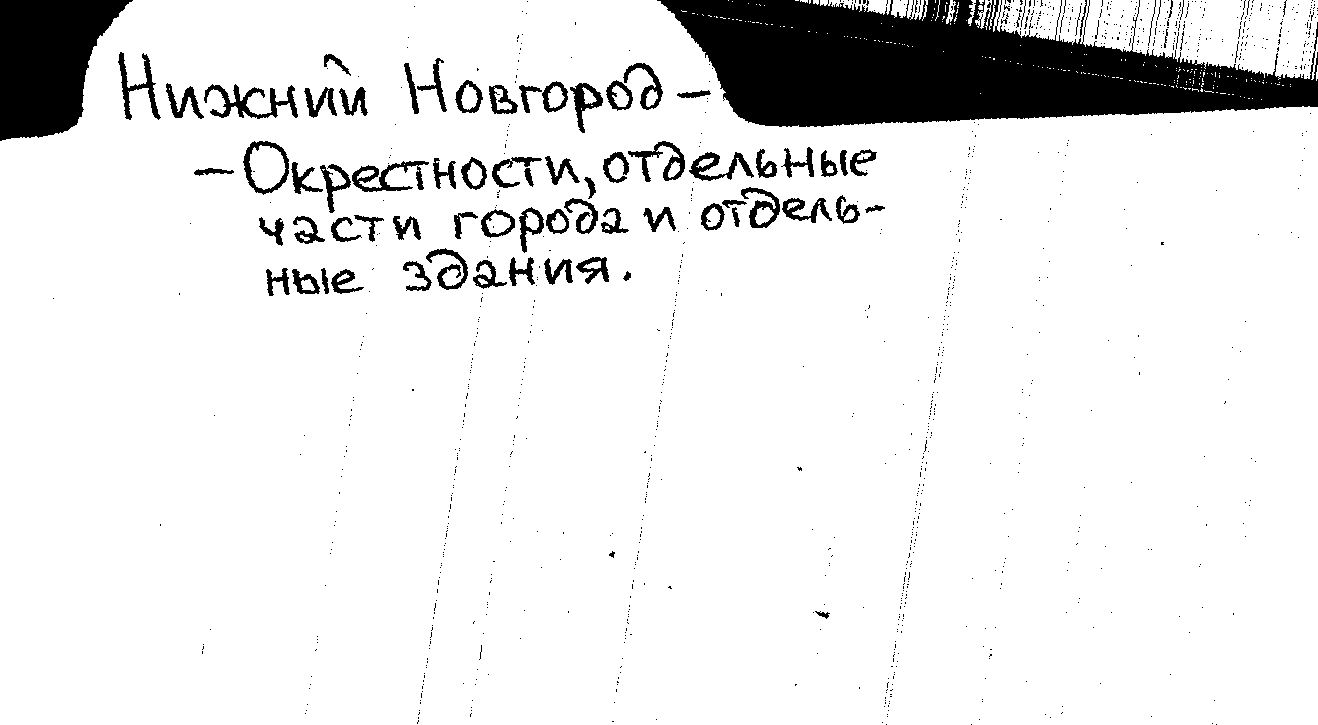 Нижний Новгород –
– Окрестности, отдельные
части города и отдель-
ные здания.